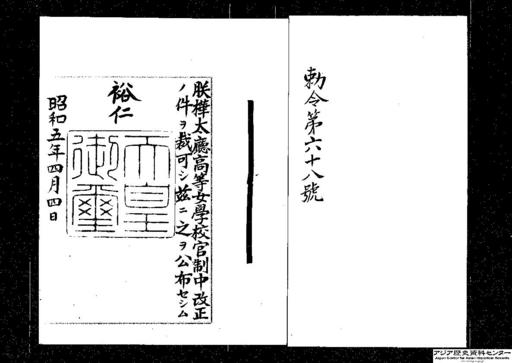 勅令第六十八號
朕樺太廳高等女學校官制中改正
ノ件ヲ裁可シ茲ニ之ヲ公布セシム
裕仁
天皇
御璽
昭和五年四月四日
アジア歴史資料センター
Japan Center for Asian Historical Records